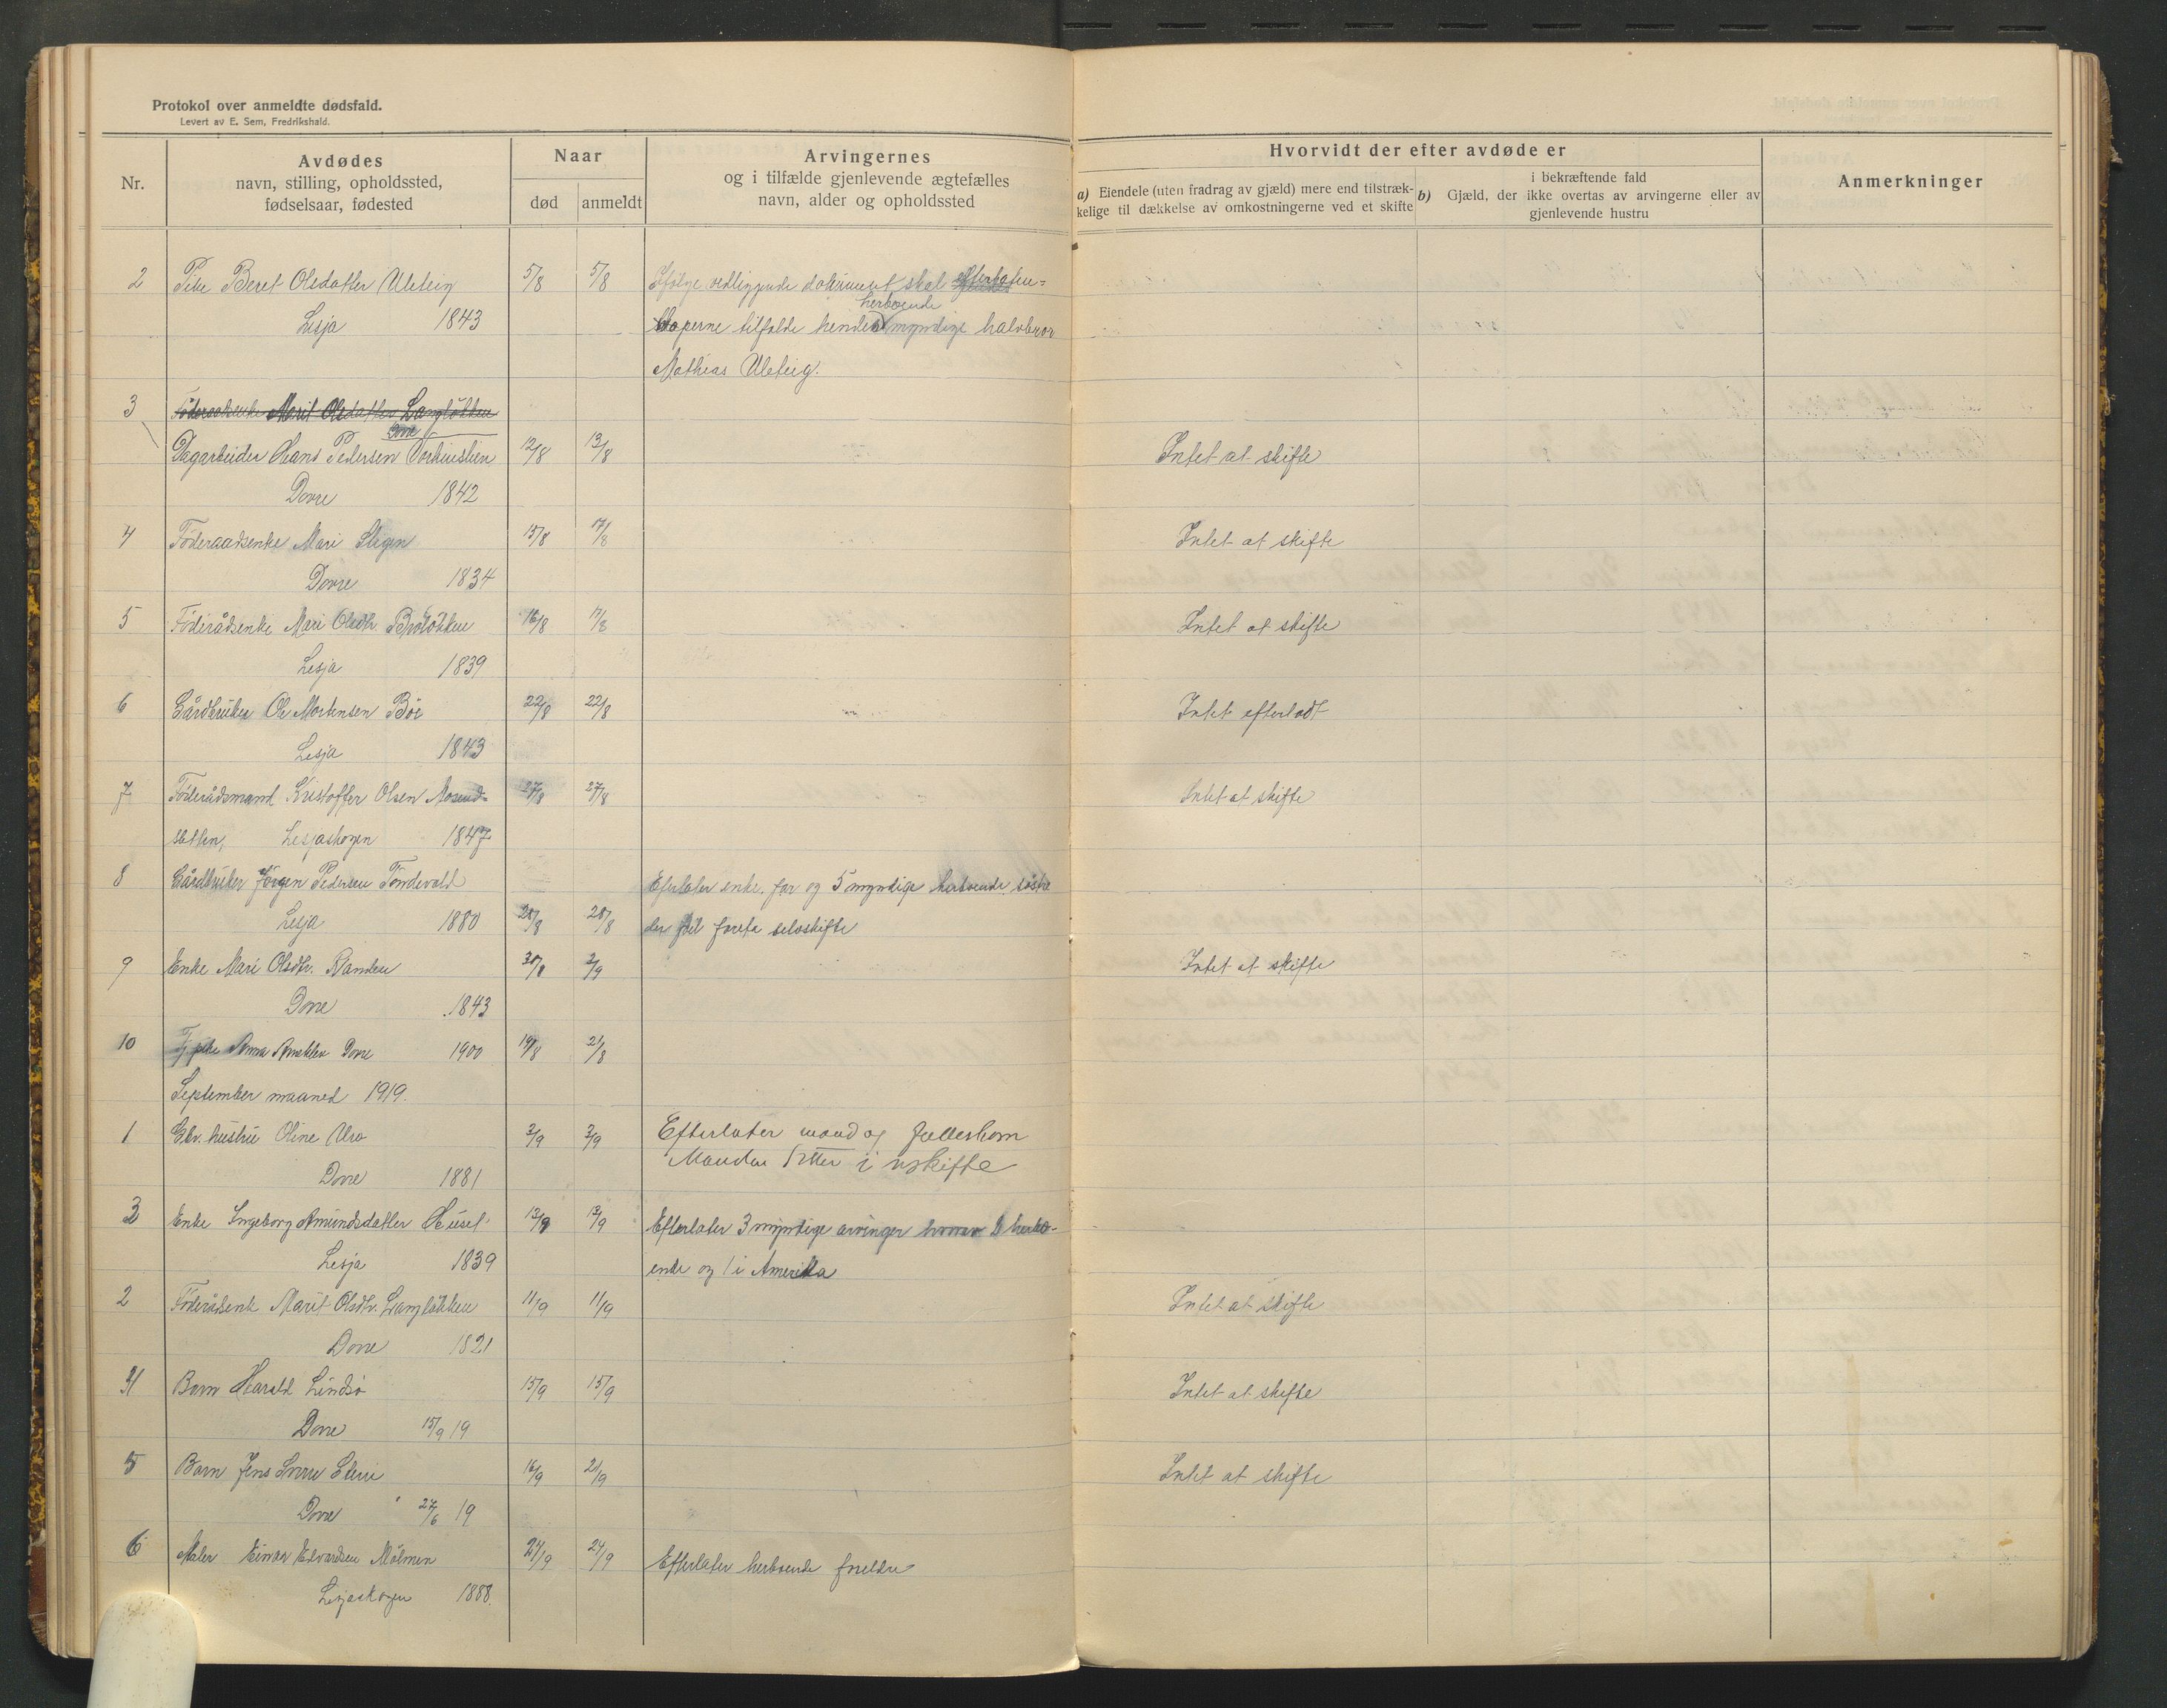 Protokol over anmeldte dødsfald.
Levert av E. Sem, Fredrikshald.
Nr.
Avdødes
navn, stilling, opholdssted,
fødselsaar, fødested
Naar
død
anmeldt
Arvingernes
og i tilfælde gjenlevende ægtefælles
navn, alder og opholdssted
Hvorvidt der efter avdøde er
a) Eiendele (uten fradrag av gjæld) mere end tilstræk-
kelige til dækkelse av omkostningerne ved et skifte
i bekræftende fald
b) Gjæld, der ikke overtas av arvingerne eller av
gjenlevende hustru
Anmerkninger
2 Pike Beret Olsdatter Uleteig 5/8 5/8 Ifølge vedliggende dokument skal
herboende
Lesja 1843 tilfalde hendes myndige halvbror
Mathias Uleteig.
3 Føderaadsenke Marit Olsdatter Langløkken
Dovre
Dagarbeider Hans Pedersen 12/8 13/8 Intet at skifte
Dovre 1842
4 Føderaadsenke Mari Stigen 15/8 17/8 Intet at skifte
Dovre 1834
5 Føderådsenke Mari Olsdtr. Broløkken 16/8 17/8 Intet at skifte
Lesja 1839
6 Gårdbruker Ole Mortensen Bøe 22/8 22/8 Intet efterladt
Lesja 1843
7 Føderådsmand Kristoffer Olsen Mosend- 27/8 27/8 Intet at skifte
sletten, Lesjaskogen 1847
8 Gårdbruker Jørgen Pedersen Tøndevold Efterlater enke, far og 5 myndige herboende søstre
Lesja 1880 28/8 28/8 der vil foreta selvskifte
9 Enke Mari Olsdtr. Randen 30/8 2/9 Intet at skifte
Dovre 1843
10 Tj pike Anna Dovre 1900 19/8 21/8
September maaned 1919.
1 Gbr. hustru Oline Uro 2/9 2/9 Efterlater mand og fællesbarn
Manden sitter i uskifte
Dovre 1881
3 Enke Ingeborg Amundsdatter Huset 13/9 13/9 Efterlater 3 myndige arvinger hvorav 2 herbo-
Lesja 1839 ende og 1 i Amerika
2 Føderådsenk Marit Olsdtr. Langløkken 11/9 11/9 Intet at skifte
Dovre 1821
4 Barn Harald Lindsø 15/9 15/9 Intet at skifte
Dovre 15/9 19
5 Barn Jens 16/9 21/9 Intet at skifte
Dovre 24/6 19
6 Maler Einar Edvardsen Mølmen 24/9 24/9 Efterlater herboende foreldre
Lesjaskogen 1888.